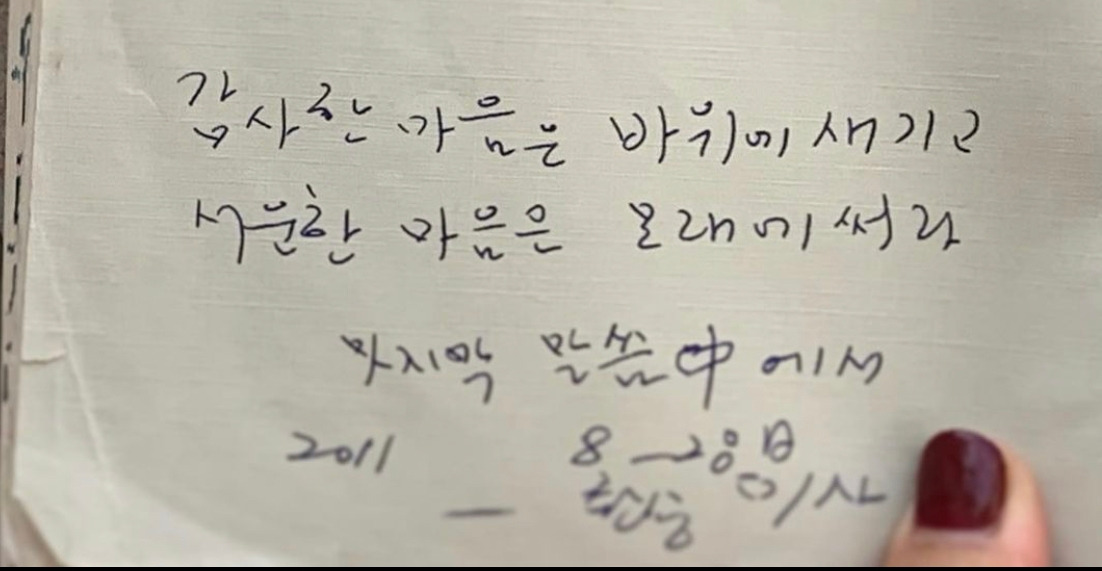 감사한 마음은 바위에 새기고
서운한 마음은 모래에 써라
마지막 말씀中에서
2011 8